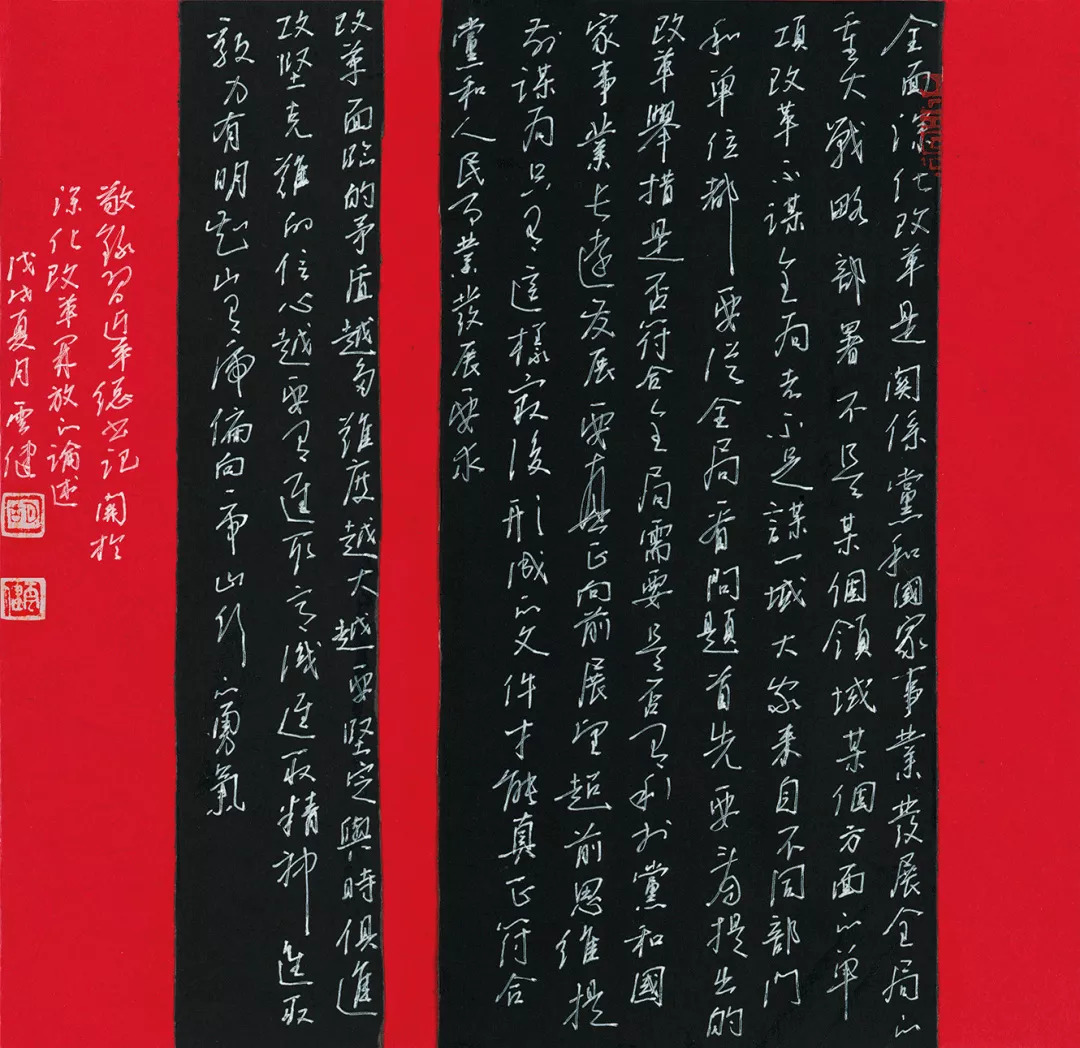 全面深化改革是關係黨和國家事業發展全局的
重大戰略部署不是某個領域某個方面的單
項改革不謀全局者不足謀一域大家来自不同部門
和單位都要從全局看問題首先要看提出的
改革舉措是否符合全局需要是否有利於黨和國
家事業長遠发展要真正向前展望超前思維提
前謀局只有這樣最後形成的文件才能真正符合
黨和人民事業發展要求
改革面臨的矛盾越多難度越大越要堅定與時俱進
攻堅克難的信心越要有進取意識進取精神進取
毅力有明知山有虎偏向虎山行的勇氣
敬錄習近平總書記關於
深化改革開放的論述
戊戌夏月雲健